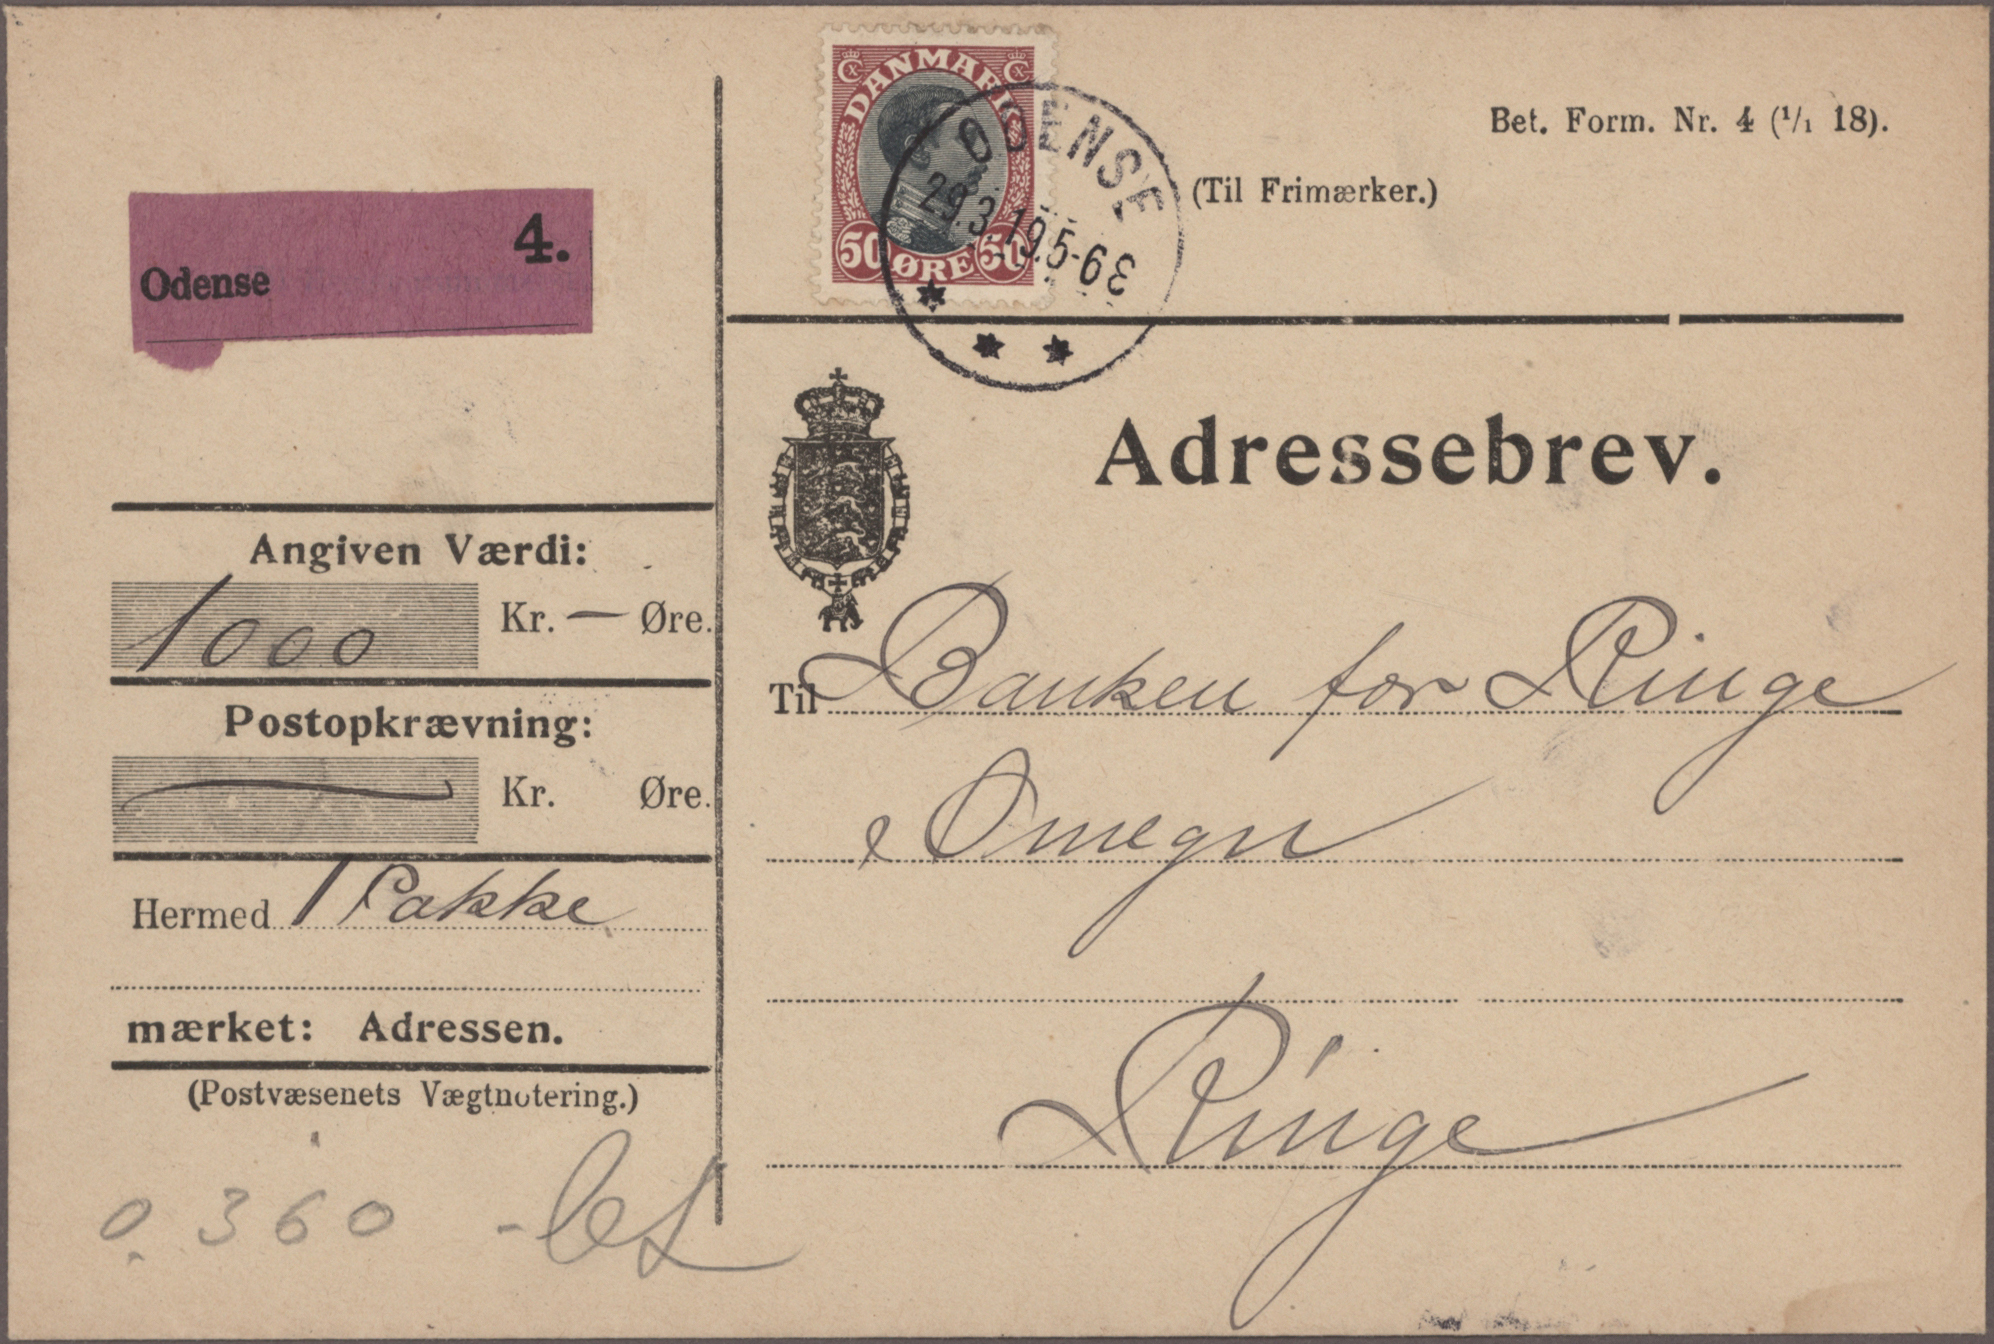 DANMARK
50 ØRE 50
ODENSE
29.3.19.5-6E
Bet. Form. Nr. 4 (1/1 18).
(Til Frimærker.)
4.
Odense
Adressebrev.
Angiven Værdi:
1000 Kr. — Øre.
Postopkrævning:
Kr. Øre.
Hermed 1 Pakke
mærket: Adressen.
(Postvæsenets Vægtnotering.)
0.360
Til Banken for Ringe
& Omegn
Ringe